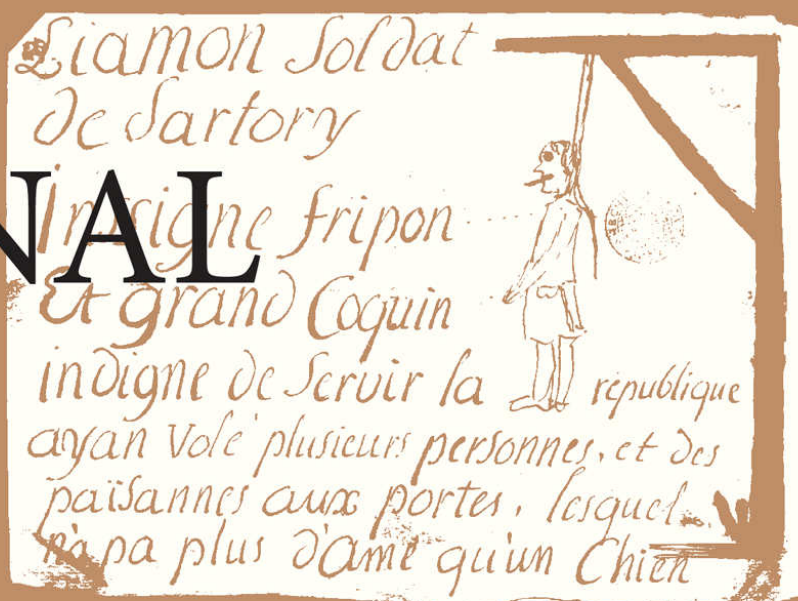 Liamon Soldat
de Sartory
NAL
Insigne fripon
Et grand Coquin
indigne de Servir la république
ayan Volé plusieurs personnes, et des
païsannes aux portes, lesquel
n'a pa plus d'ame qu'un Chien